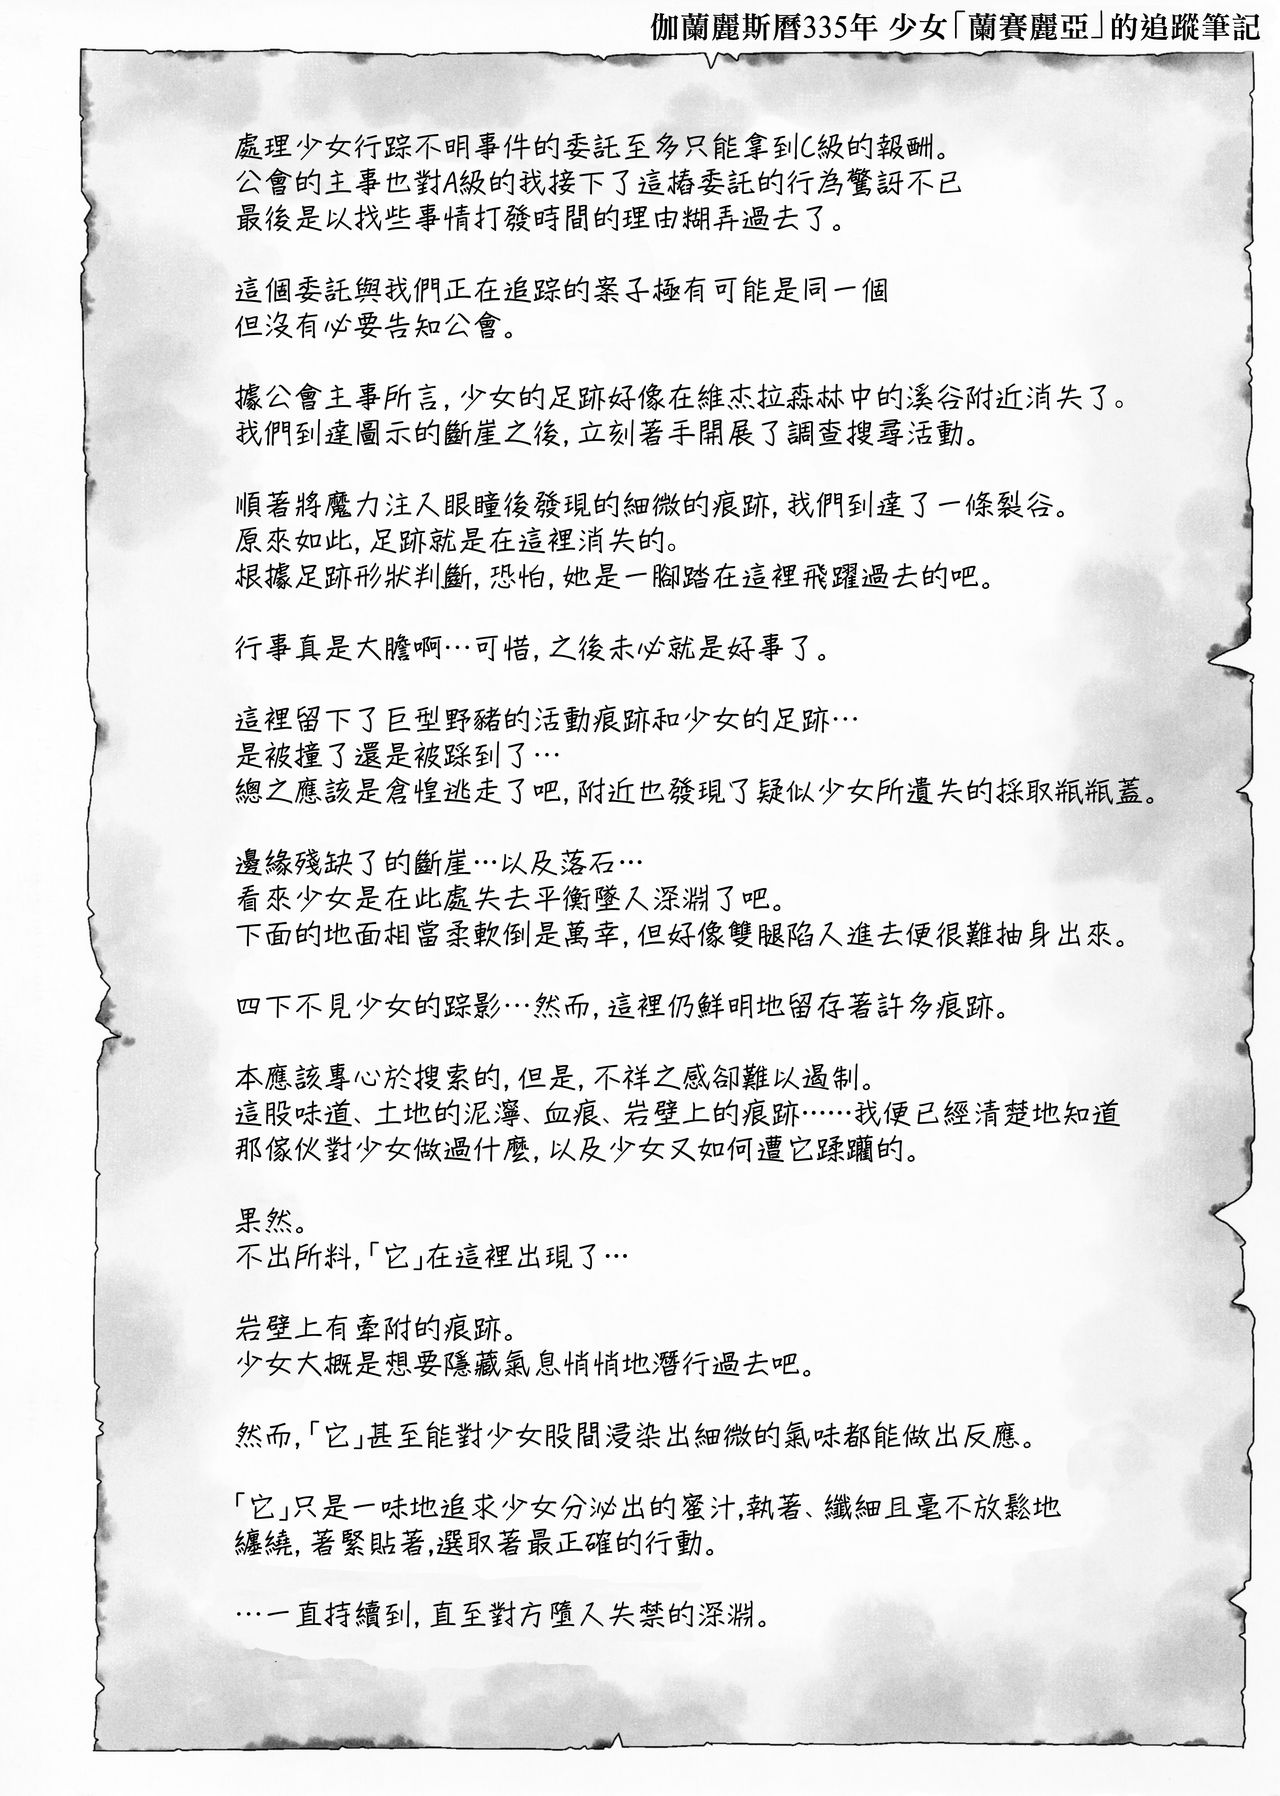 伽蘭麗斯曆335年 少女「蘭賽麗亞」的追蹤筆記
處理少女行踪不明事件的委託至多只能拿到C級的報酬。
公會的主事也對A級的我接下了這樁委託的行為驚訝不已
最後是以找些事情打發時間的理由糊弄過去了。
這個委託與我們正在追踪的案子極有可能是同一個
但沒有必要告知公會。
據公會主事所言,少女的足跡好像在維杰拉森林中的溪谷附近消失了。
我們到達圖示的斷崖之後,立刻著手開展了調查搜尋活動。
順著將魔力注入眼瞳後發現的細微的痕跡,我們到達了一條裂谷。
原來如此,足跡就是在這裡消失的。
根據足跡形狀判斷,恐怕,她是一腳踏在這裡飛躍過去的吧。
行事真是大膽啊…可惜,之後未必就是好事了。
這裡留下了巨型野豬的活動痕跡和少女的足跡…
是被撞了還是被踩到了…
總之應該是倉惶逃走了吧,附近也發現了疑似少女所遺失的採取瓶瓶蓋。
邊緣殘缺了的斷崖…以及落石…
看來少女是在此處失去平衡墜入深淵了吧。
下面的地面相當柔軟倒是萬幸,但好像雙腿陷入進去便很難抽身出來。
四下不見少女的踪影…然而,這裡仍鮮明地留存著許多痕跡。
本應該專心於搜索的,但是,不祥之感卻難以遏制。
這股味道、土地的泥濘、血痕、岩壁上的痕跡……我便已經清楚地知道
那傢伙對少女做過什麼,以及少女又如何遭它蹂躪的。
果然。
不出所料,「它」在這裡出現了…
岩壁上有牽附的痕跡。
少女大概是想要隱藏氣息悄悄地潛行過去吧。
然而,「它」甚至能對少女股間浸染出細微的氣味都能做出反應。
「它」只是一味地追求少女分泌出的蜜汁,執著、纖細且毫不放鬆地
纏繞,著緊貼著,選取著最正確的行動。
…一直持續到,直至對方墮入失禁的深淵。